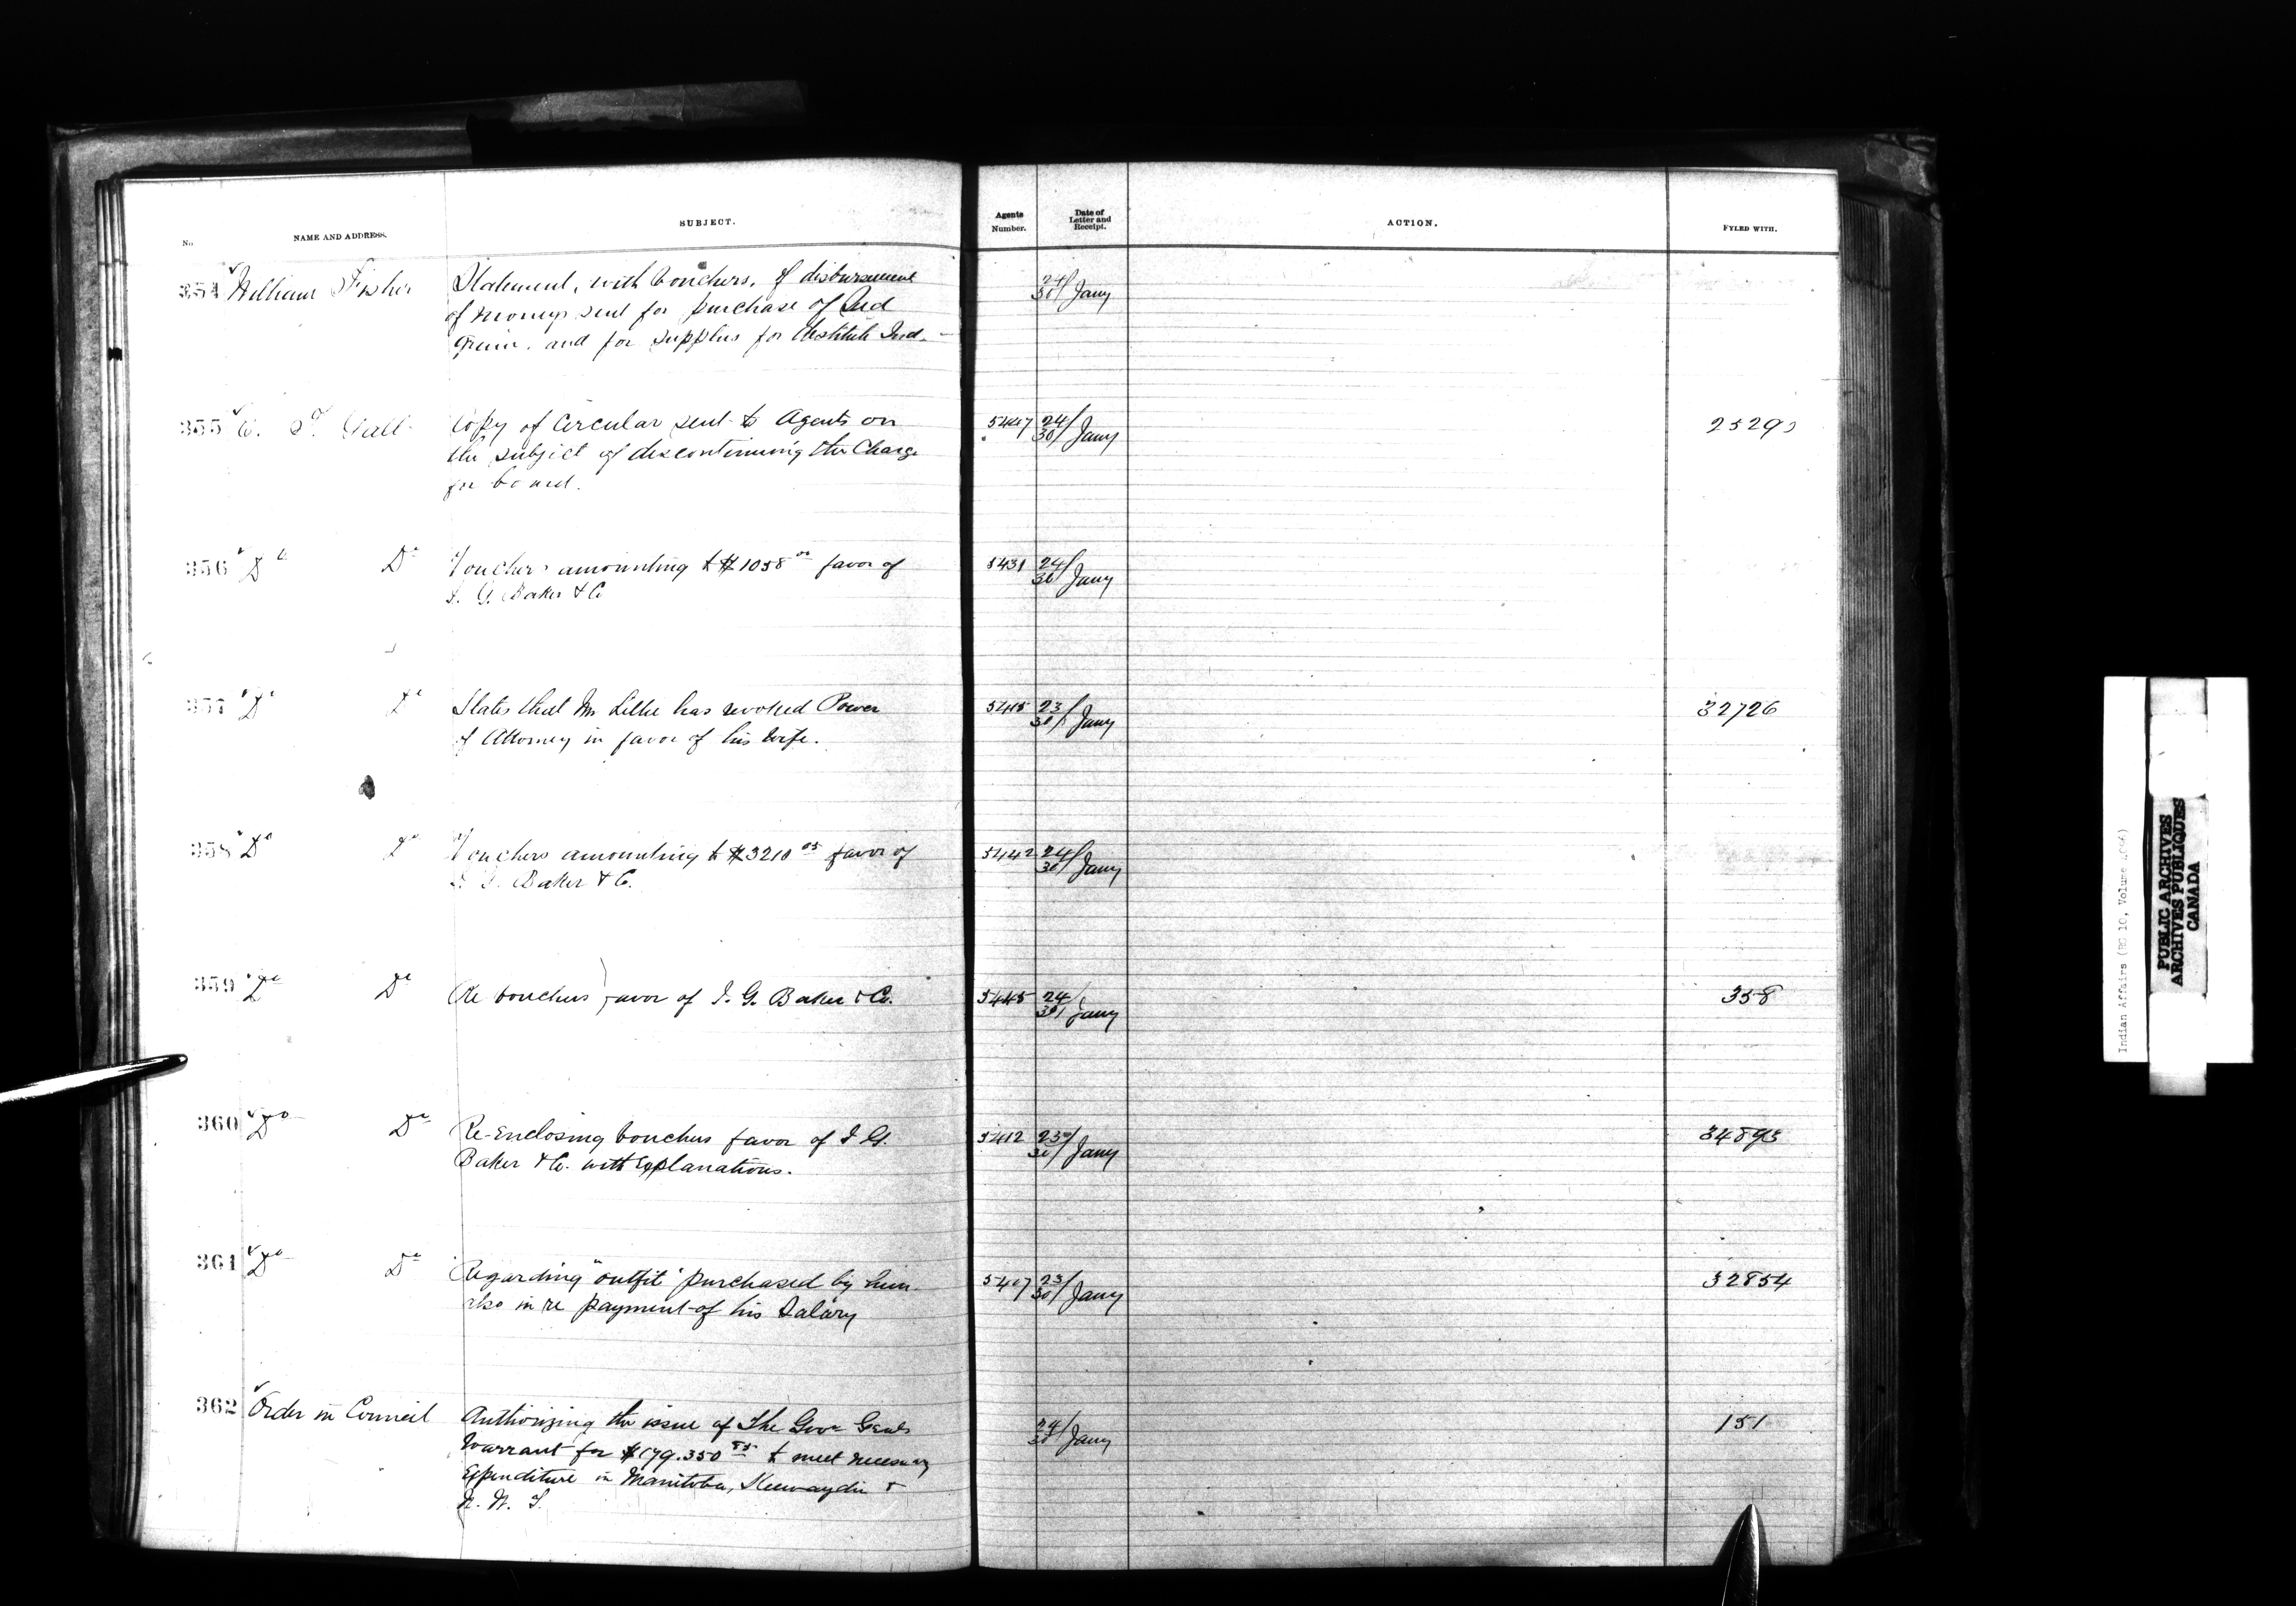 No.
NAME AND ADDRESS.
SUBJECT.
Agents Number.
Date of Letter and Receipt.
ACTION.
FYLED WITH.
354 William Fisher Statement, with vouchers, of disbursement 24/30 Jany
of moneys sent for purchase of Seed
Grain, and for supplies for destitute Ind.
355 E. T. Galt Copy of Circular sent to Agents on 24/30 Jany 2529
the subject of discontinuing the Charge
for board.
356 Do Do Vouchers amounting to $1058 00 favor of 5431 24/30 Jany
I. G. Baker & Co
357 Do Do States that Mr Lillie has revoked Power 23/30 Jany 32726
of Attorney in favor of his wife.
358 Do Do Vouchers amounting to $3210 05 favor of 5442 24/30 Jany
I. G. Baker & Co.
359 Do Do Re vouchers favor of I. G. Baker & Co. 5445 24/30 Jany 358
360 Do Do Re-Enclosing vouchers favor of I G. 5412 23/30 Jany 34893
Baker & Co. with explanations.
361 Do Do Regarding "outfit" purchased by him 5407 23/30 Jany 32854
also in re payment of his Salary
362 Order in Council Authorizing the issue of The Govr Genls 24/30 Jany 151
Warrant for $179.350 85 to meet necessary
Expenditure in Manitoba, Keewaydin &
N. W. T.
Indian Affairs (RG 10, Volume
PUBLIC ARCHIVES
ARCHIVES PUBLIQUES
CANADA